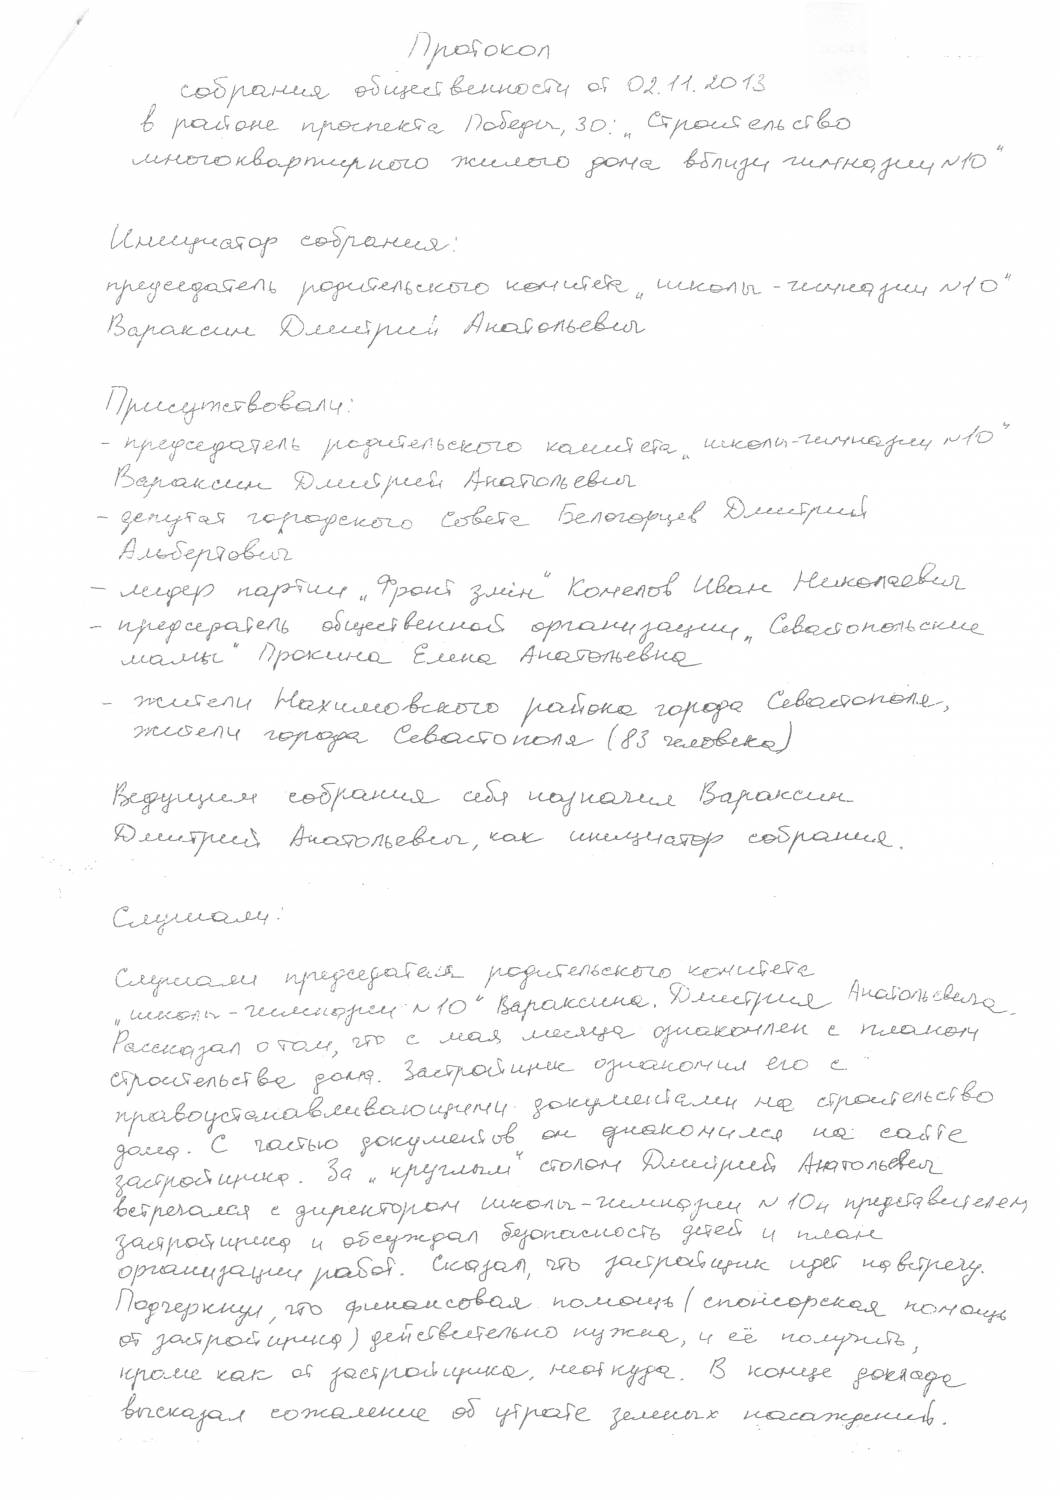 Протокол
собрания общественности от 02.11.2013
в районе проспекта Победы, 30: „Строительство
многоквартирного жилого дома вблизи гимназии №10"
Инициатор собрания:
председатель родительского комитета „школы-гимназии №10"
Вараксин Дмитрий Анатольевич
Присутствовали:
- председатель родительского комитета „школы-гимназии №10"
Вараксин Дмитрий Анатольевич
- депутат городского Совета Белогорцев Дмитрий
Альбертович
- лидер партии „Фронт змін" Комелов Иван Николаевич
- председатель общественной организации „Севастопольские
мамы" Прокина Елена Анатольевна
- жители Нахимовского района города Севастополя,
жители города Севастополя (83 человека)
Ведущим собрания себя назначил Вараксин
Дмитрий Анатольевич, как инициатор собрания.
Слушали:
Слушали председателя родительского комитета
„школы-гимназии №10" Вараксина Дмитрия Анатольевича.
Рассказал о том, что с мая месяца ознакомлен с планом
строительства дома. Застройщик ознакомил его с
правоустанавливающими документами на строительство
дома. С частью документов он ознакомился на сайте
застройщика. За „круглым" столом Дмитрий Анатольевич
встречался с директором школы-гимназии №10 и представителем
застройщика и обсуждал безопасность детей и план
организации работ. Сказал, что застройщик идет навстречу.
Подчеркнул, что финансовая помощь (спонсорская помощь
от застройщика) действительно нужна, и её получить,
кроме как от застройщика, неоткуда. В конце доклада
высказал сожаление об утрате зеленых насаждений.